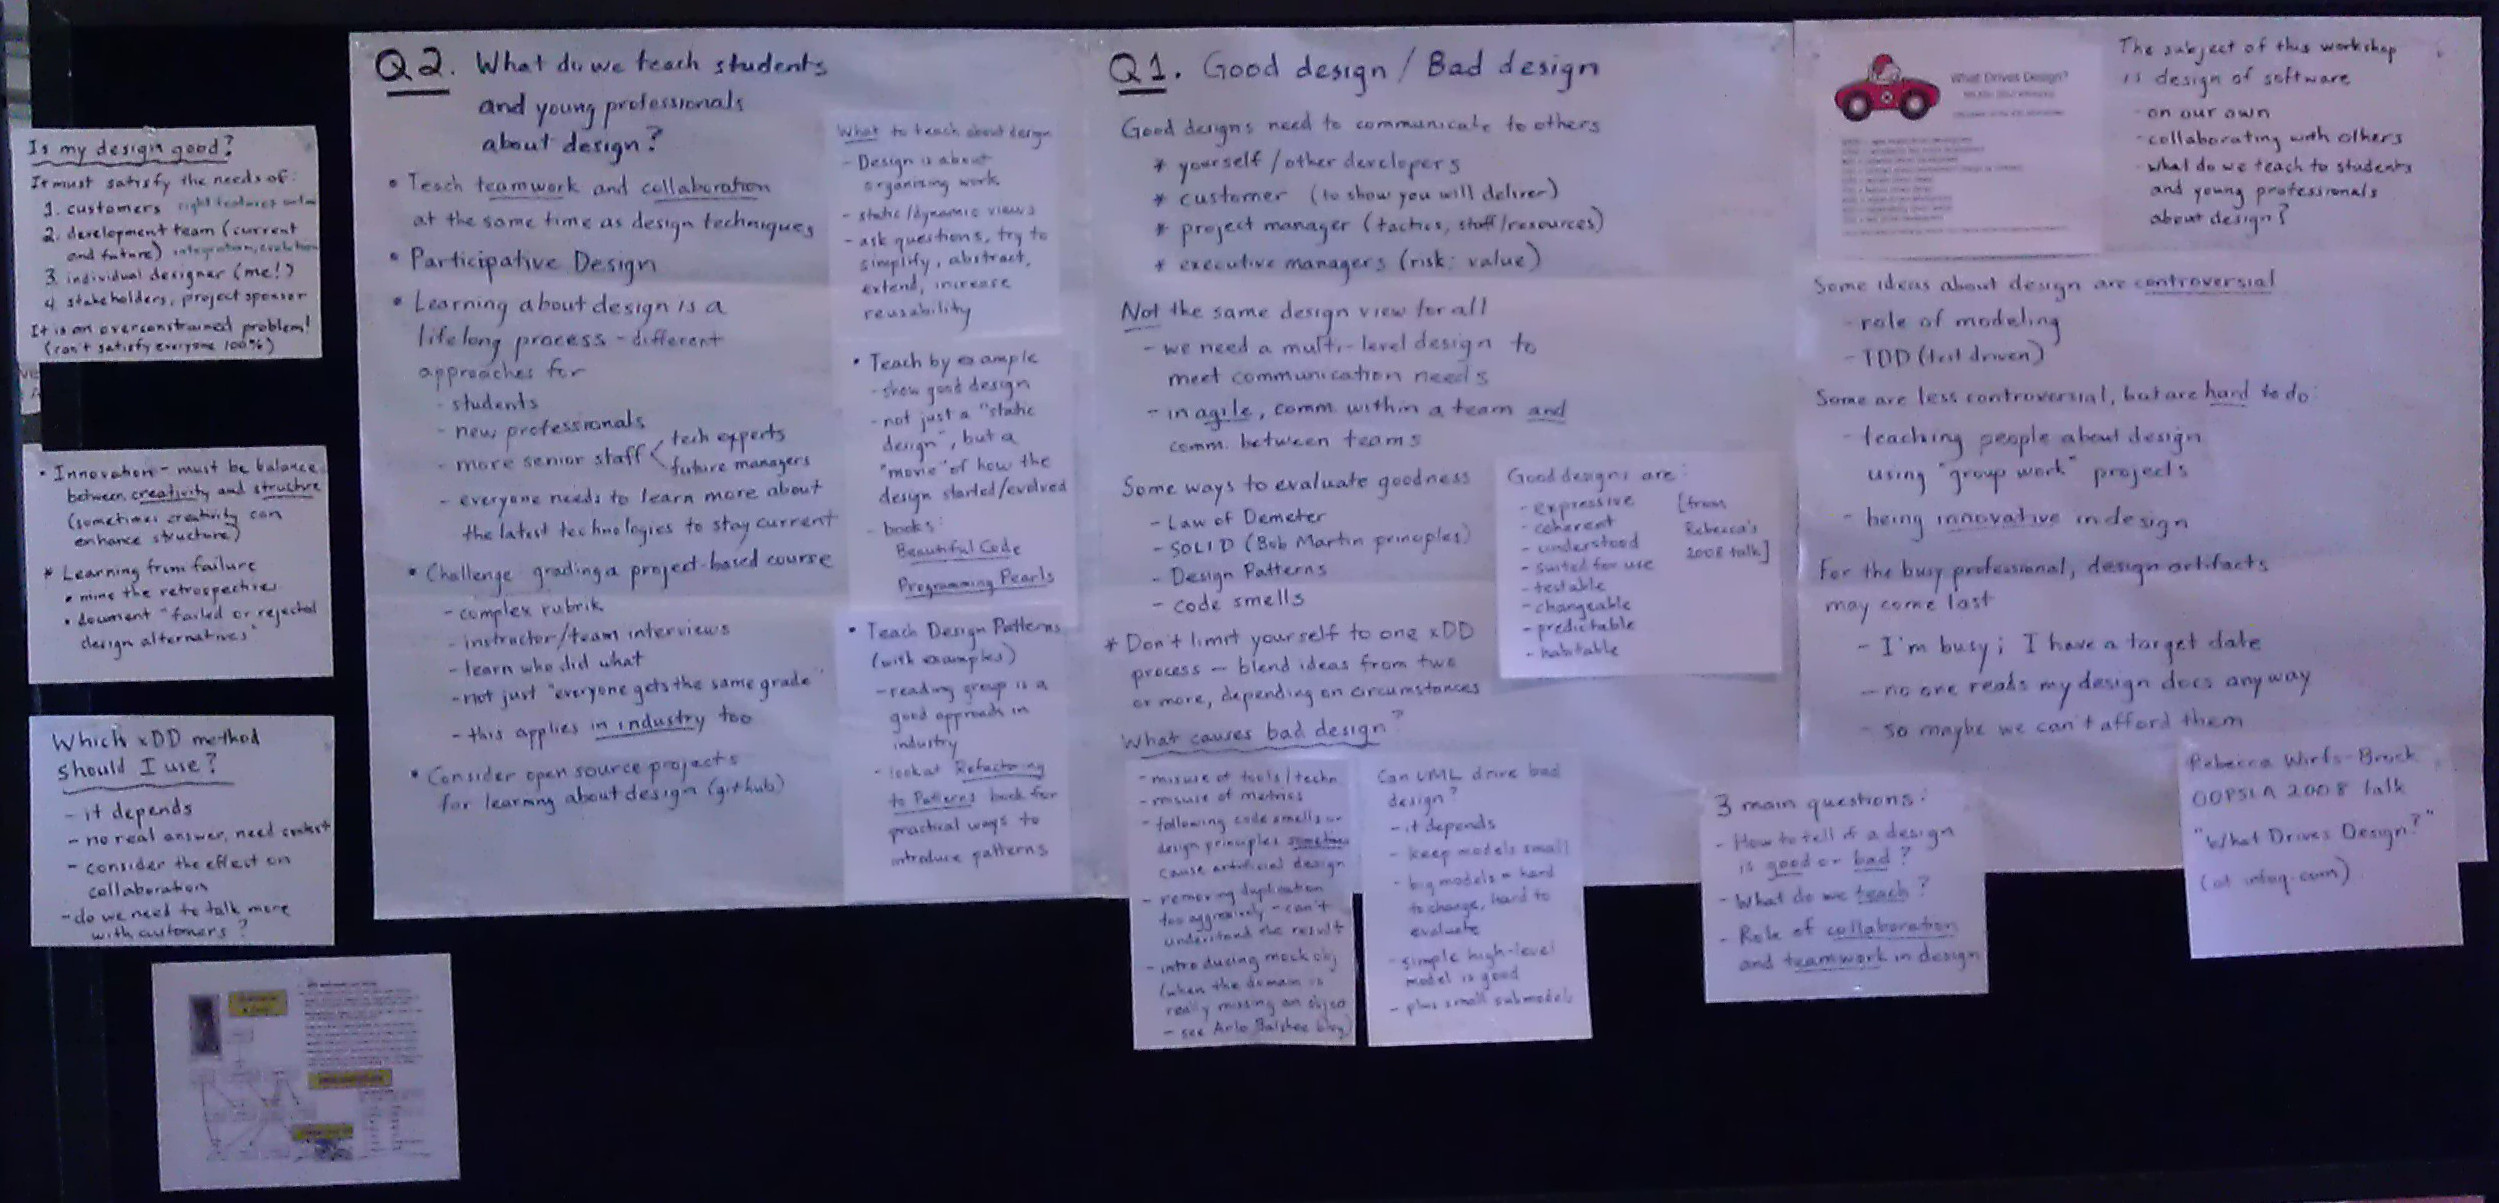 Is my design good?
It must satisfy the needs of:
1. customers right features
2. development team (current
and future) integration, evolution
3. individual designer (me!)
4. stakeholders, project sponsor
It is an overconstrained problem!
(can't satisfy everyone 100%)
• Innovation - must be balance
between creativity and structure
(sometimes creativity can
enhance structure)
* Learning from failure
• mine the retrospectives
• document "failed or rejected
design alternatives"
Which xDD method
should I use?
- it depends
- no real answer, need context
- consider the effect on
collaboration
- do we need to talk more
with customers?
Q2. What do we teach students
and young professionals
about design?
• Teach teamwork and collaboration
at the same time as design techniques
• Participative Design
• Learning about design is a
lifelong process - different
approaches for
- students
- new professionals
- more senior staff < tech experts
future managers
- everyone needs to learn more about
the latest technologies to stay current
• Challenge: grading a project-based course
- complex rubrik
- instructor/team interviews
- learn who did what
- not just "everyone gets the same grade"
- this applies in industry too
• Consider open source projects
for learning about design (github)
What to teach about design
- Design is about
organizing work
- static/dynamic views
- ask questions, try to
simplify, abstract,
extend, increase
reusability
• Teach by example
- show good design
- not just a "static
design", but a
"movie" of how the
design started/evolved
- books:
Beautiful Code
Programming Pearls
• Teach Design Patterns
(with examples)
- reading group is a
good approach in
industry
- look at Refactoring
to Patterns book for
practical ways to
introduce patterns
Q1. Good design / Bad design
Good designs need to communicate to others
* yourself / other developers
* customer (to show you will deliver)
* project manager (tactics, staff/resources)
* executive managers (risk: value)
Not the same design view for all
- we need a multi-level design to
meet communication needs
- in agile, comm. within a team and
comm. between teams
Some ways to evaluate goodness
- Law of Demeter
- SOLID (Bob Martin principles)
- Design Patterns
- code smells
* Don't limit yourself to one xDD
process - blend ideas from two
or more, depending on circumstances
What causes bad design?
Good designs are:
- expressive [from
- coherent Rebecca's
- understood 2008 talk]
- suited for use
- testable
- changeable
- predictable
- habitable
- misuse of tools/techn.
- misuse of metrics
- following code smells or
design principles sometimes
cause artificial design
- removing duplication
too aggressively - can't
understand the result
- introducing mock obj
(when the domain is
really missing an object
- see Arlo Belshee blog)
Can UML drive bad
design?
- it depends
- keep models small
- big models = hard
to change, hard to
evaluate
- simple high-level
model is good
- plus small submodels
What Drives Design?
The subject of this workshop
is design of software
- on our own
- collaborating with others
- what do we teach to students
and young professionals
about design?
Some ideas about design are controversial
- role of modeling
- TDD (test driven)
Some are less controversial, but are hard to do:
- teaching people about design
using "group work" projects
- being innovative in design
For the busy professional, design artifacts
may come last
- I'm busy; I have a target date
- no one reads my design docs anyway
- so maybe we can't afford them
3 main questions:
- How to tell if a design
is good or bad?
- What do we teach?
- Role of collaboration
and teamwork in design
Rebecca Wirfs-Brock
OOPSLA 2008 talk
"What Drives Design?"
(at infoq.com)